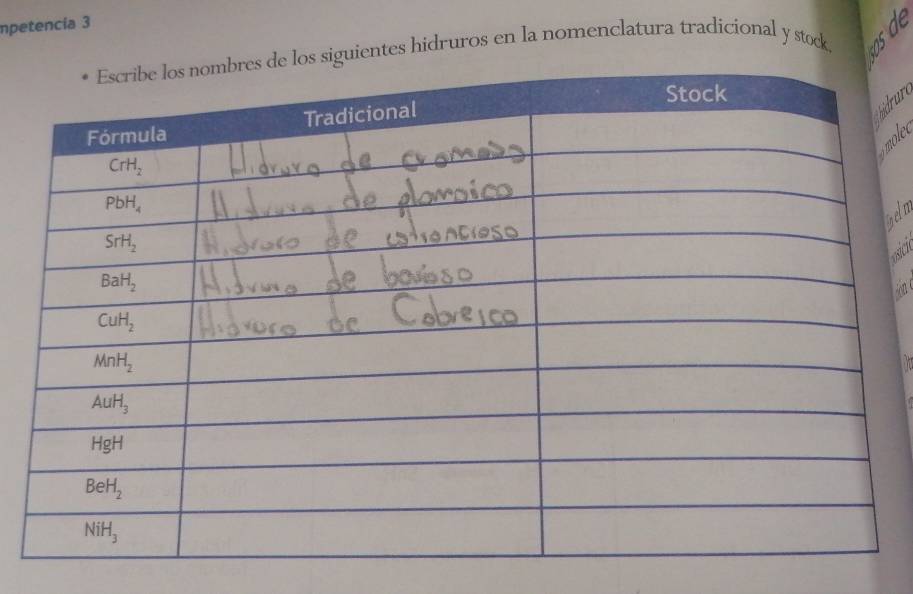 mpetencia 3
• Escribe los nombres de los siguientes hidruros en la nomenclatura tradicional y stock.
Fórmula Tradicional Stock
CrH₂ Hidruro de cromoso
PbH₄ Hidruro de plomoico
SrH₂ Hidruro de estroncioso
BaH₂ Hidruro de barioso
CuH₂ Hidruro de Cobreico
MnH₂
AuH₃
HgH
BeH₂
NiH₃
sos de
hidruro
molec
En el m